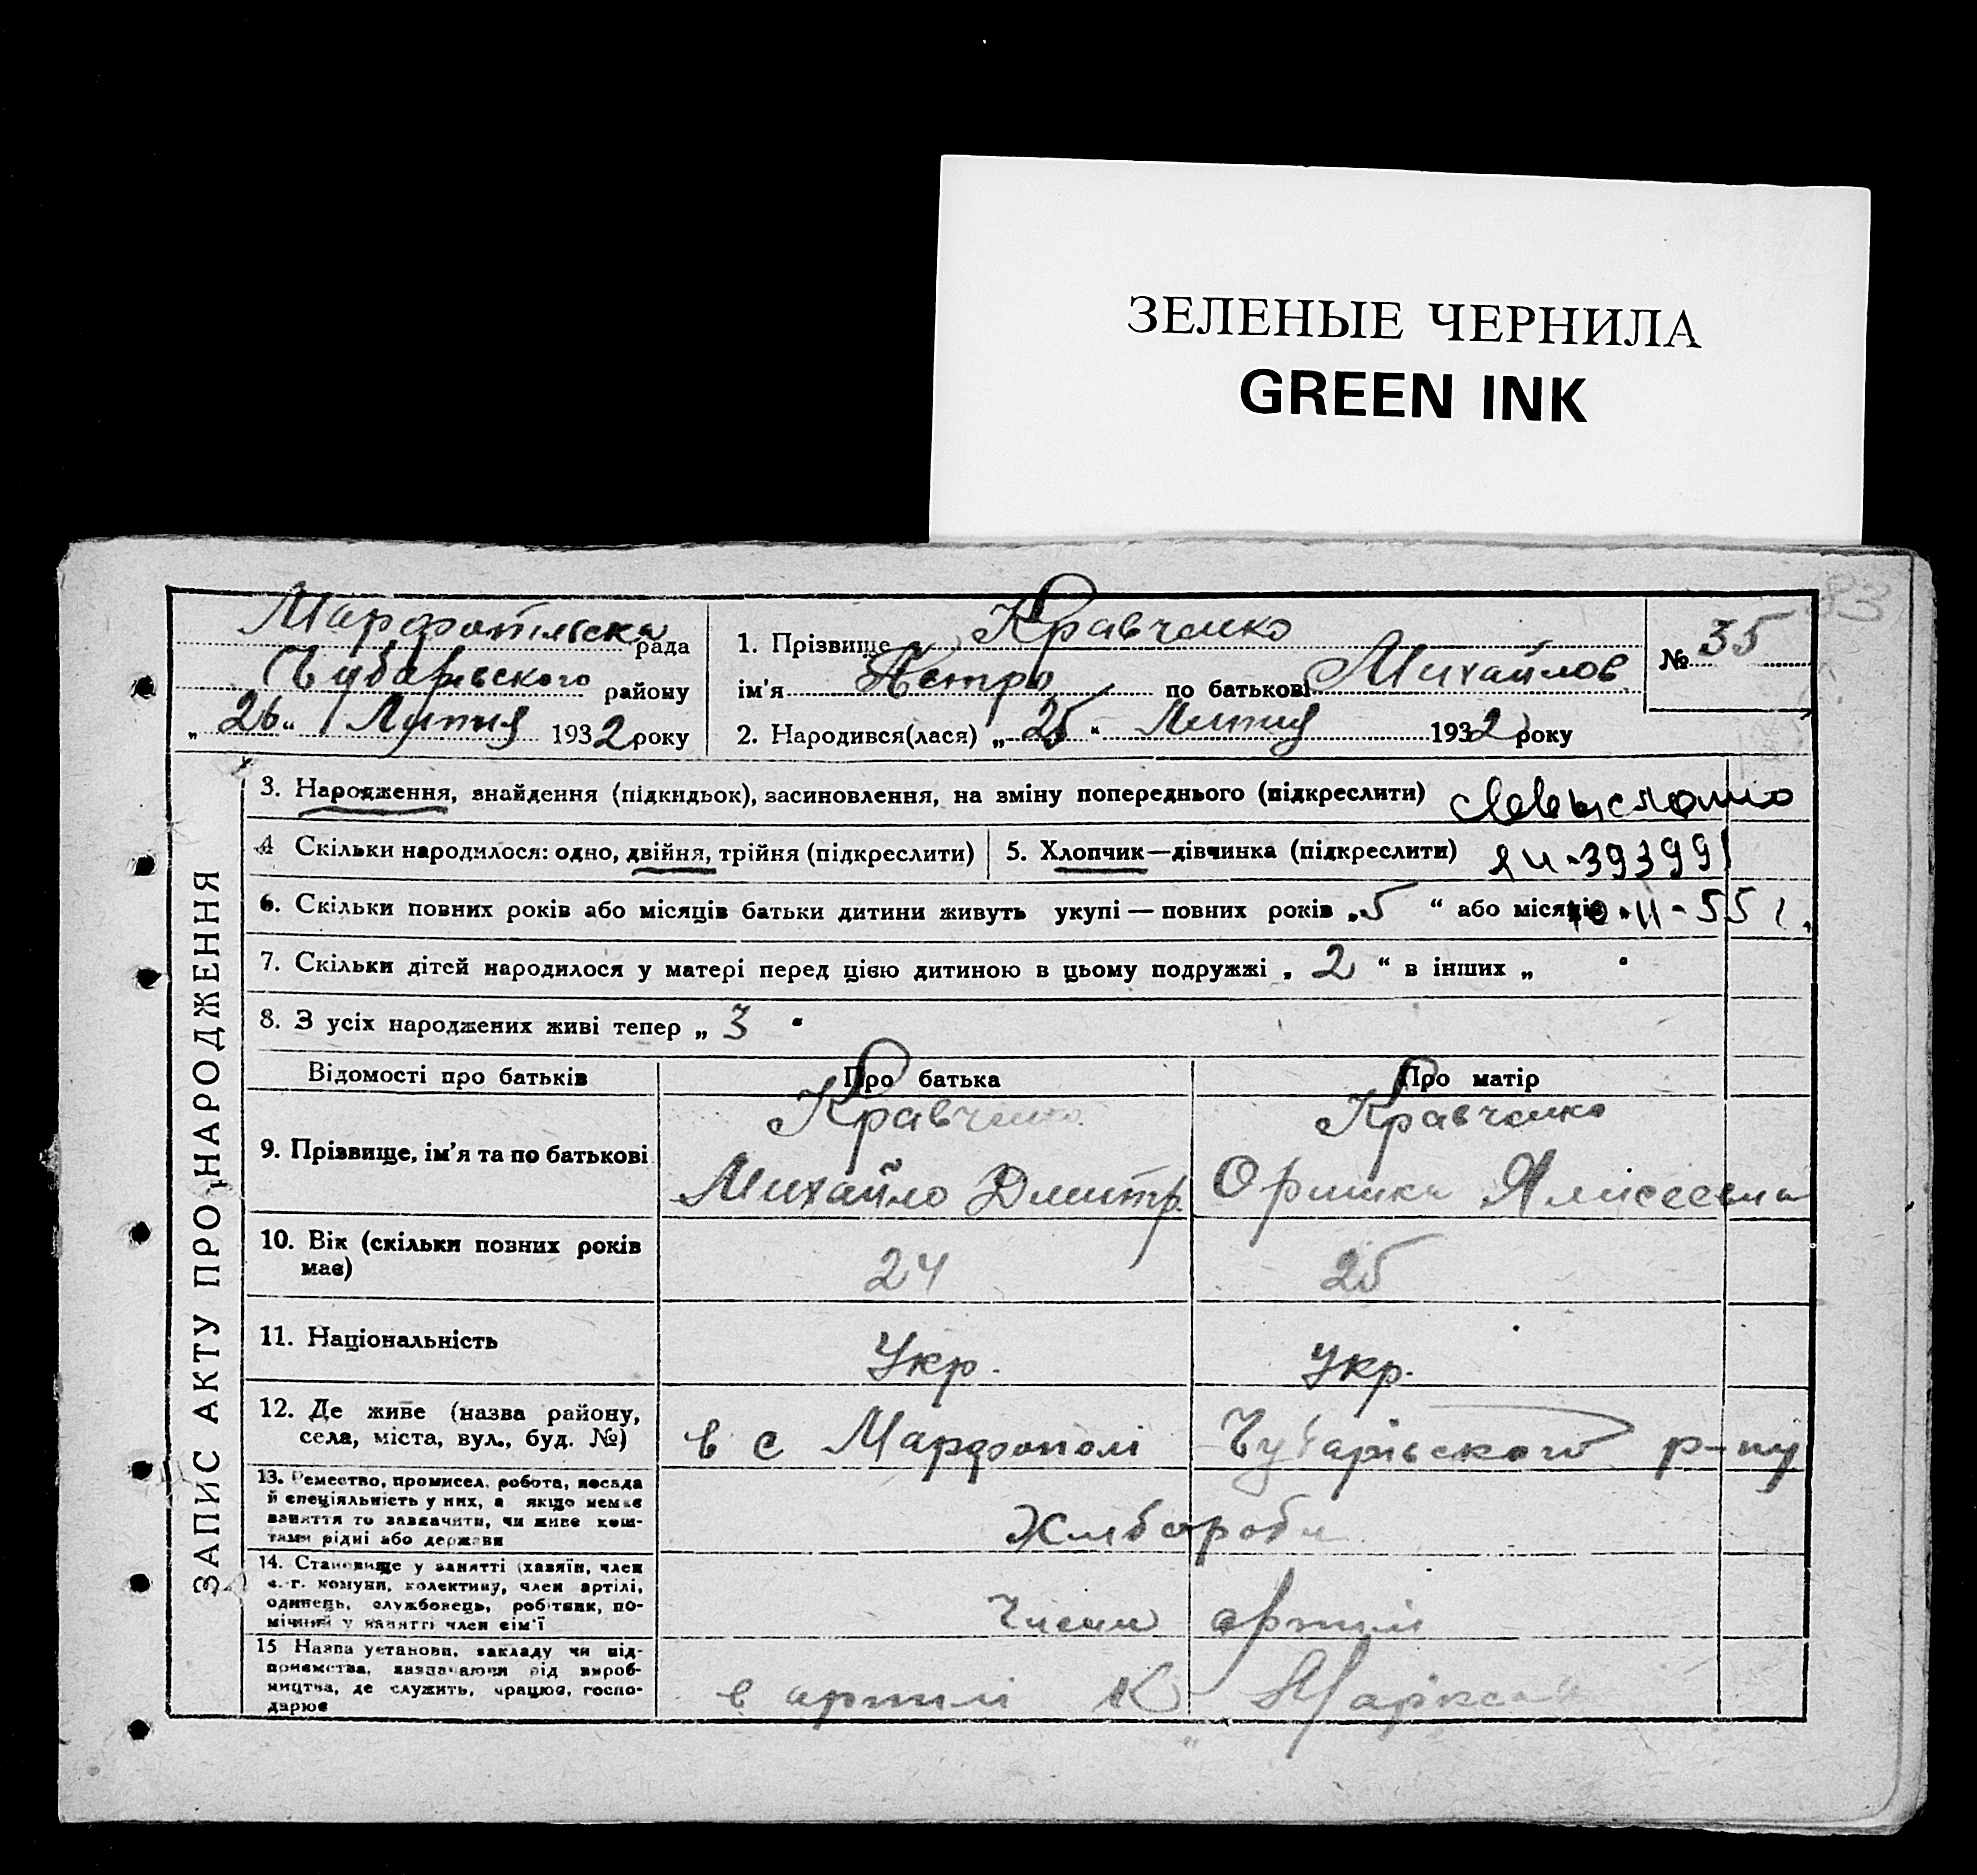 ЗЕЛЕНЫЕ ЧЕРНИЛА
GREEN INK
Марфопільска рада
Чубарівського району
„ 26 " Лютня 1932 року
1. Прізвище Кравченко
ім'я Петро по батькові Михайлов.
2. Народився(лася) „ 25 " Лютня 1932 року
№ 35
ЗАПИС АКТУ ПРО НАРОДЖЕННЯ
3. Народження, знайдення (підкидьок), засиновлення, на зміну попереднього (підкреслити)
4 Скільки народилося: одно, двійня, трійня (підкреслити)
5. Хлопчик—дівчинка (підкреслити) 393991
6. Скільки повних років або місяців батьки дитини живуть укупі — повних років „ 5 " або місяців 11-55 г.
7. Скільки дітей народилося у матері перед цією дитиною в цьому подружжі „ 2 " в інших „ "
8. З усіх народжених живі тепер „ 3 "
Відомості про батьків Про батька Про матір
9. Прізвище, ім'я та по батькові
Кравченко Кравченко
Михайло Дмитр. Оришка
10. Вік (скільки повних років має) 24 25
11. Національність Укр. Укр.
12. Де живе (назва району, села, міста, вул., буд. №) в с Марфополі Чубарівського р-ну
13. Ремество, промисел, робота, посада
й спеціяльність у них, а якщо немає
заняття то зазначити, чи живе кош-
тами рідні або держави
Хлібороби
14. Становище у занятті (хазяїн, член
с.-г. комуни, колективу, член артілі,
одинець, службовець, робітник, по-
мічний у занятті член сім'ї
Члени артілі
15 Назва установи, закладу чи під-
приємства, зазначаючи рід вироб-
ництва, де служить, працює, госпо-
дарює
в артілі К Маркса